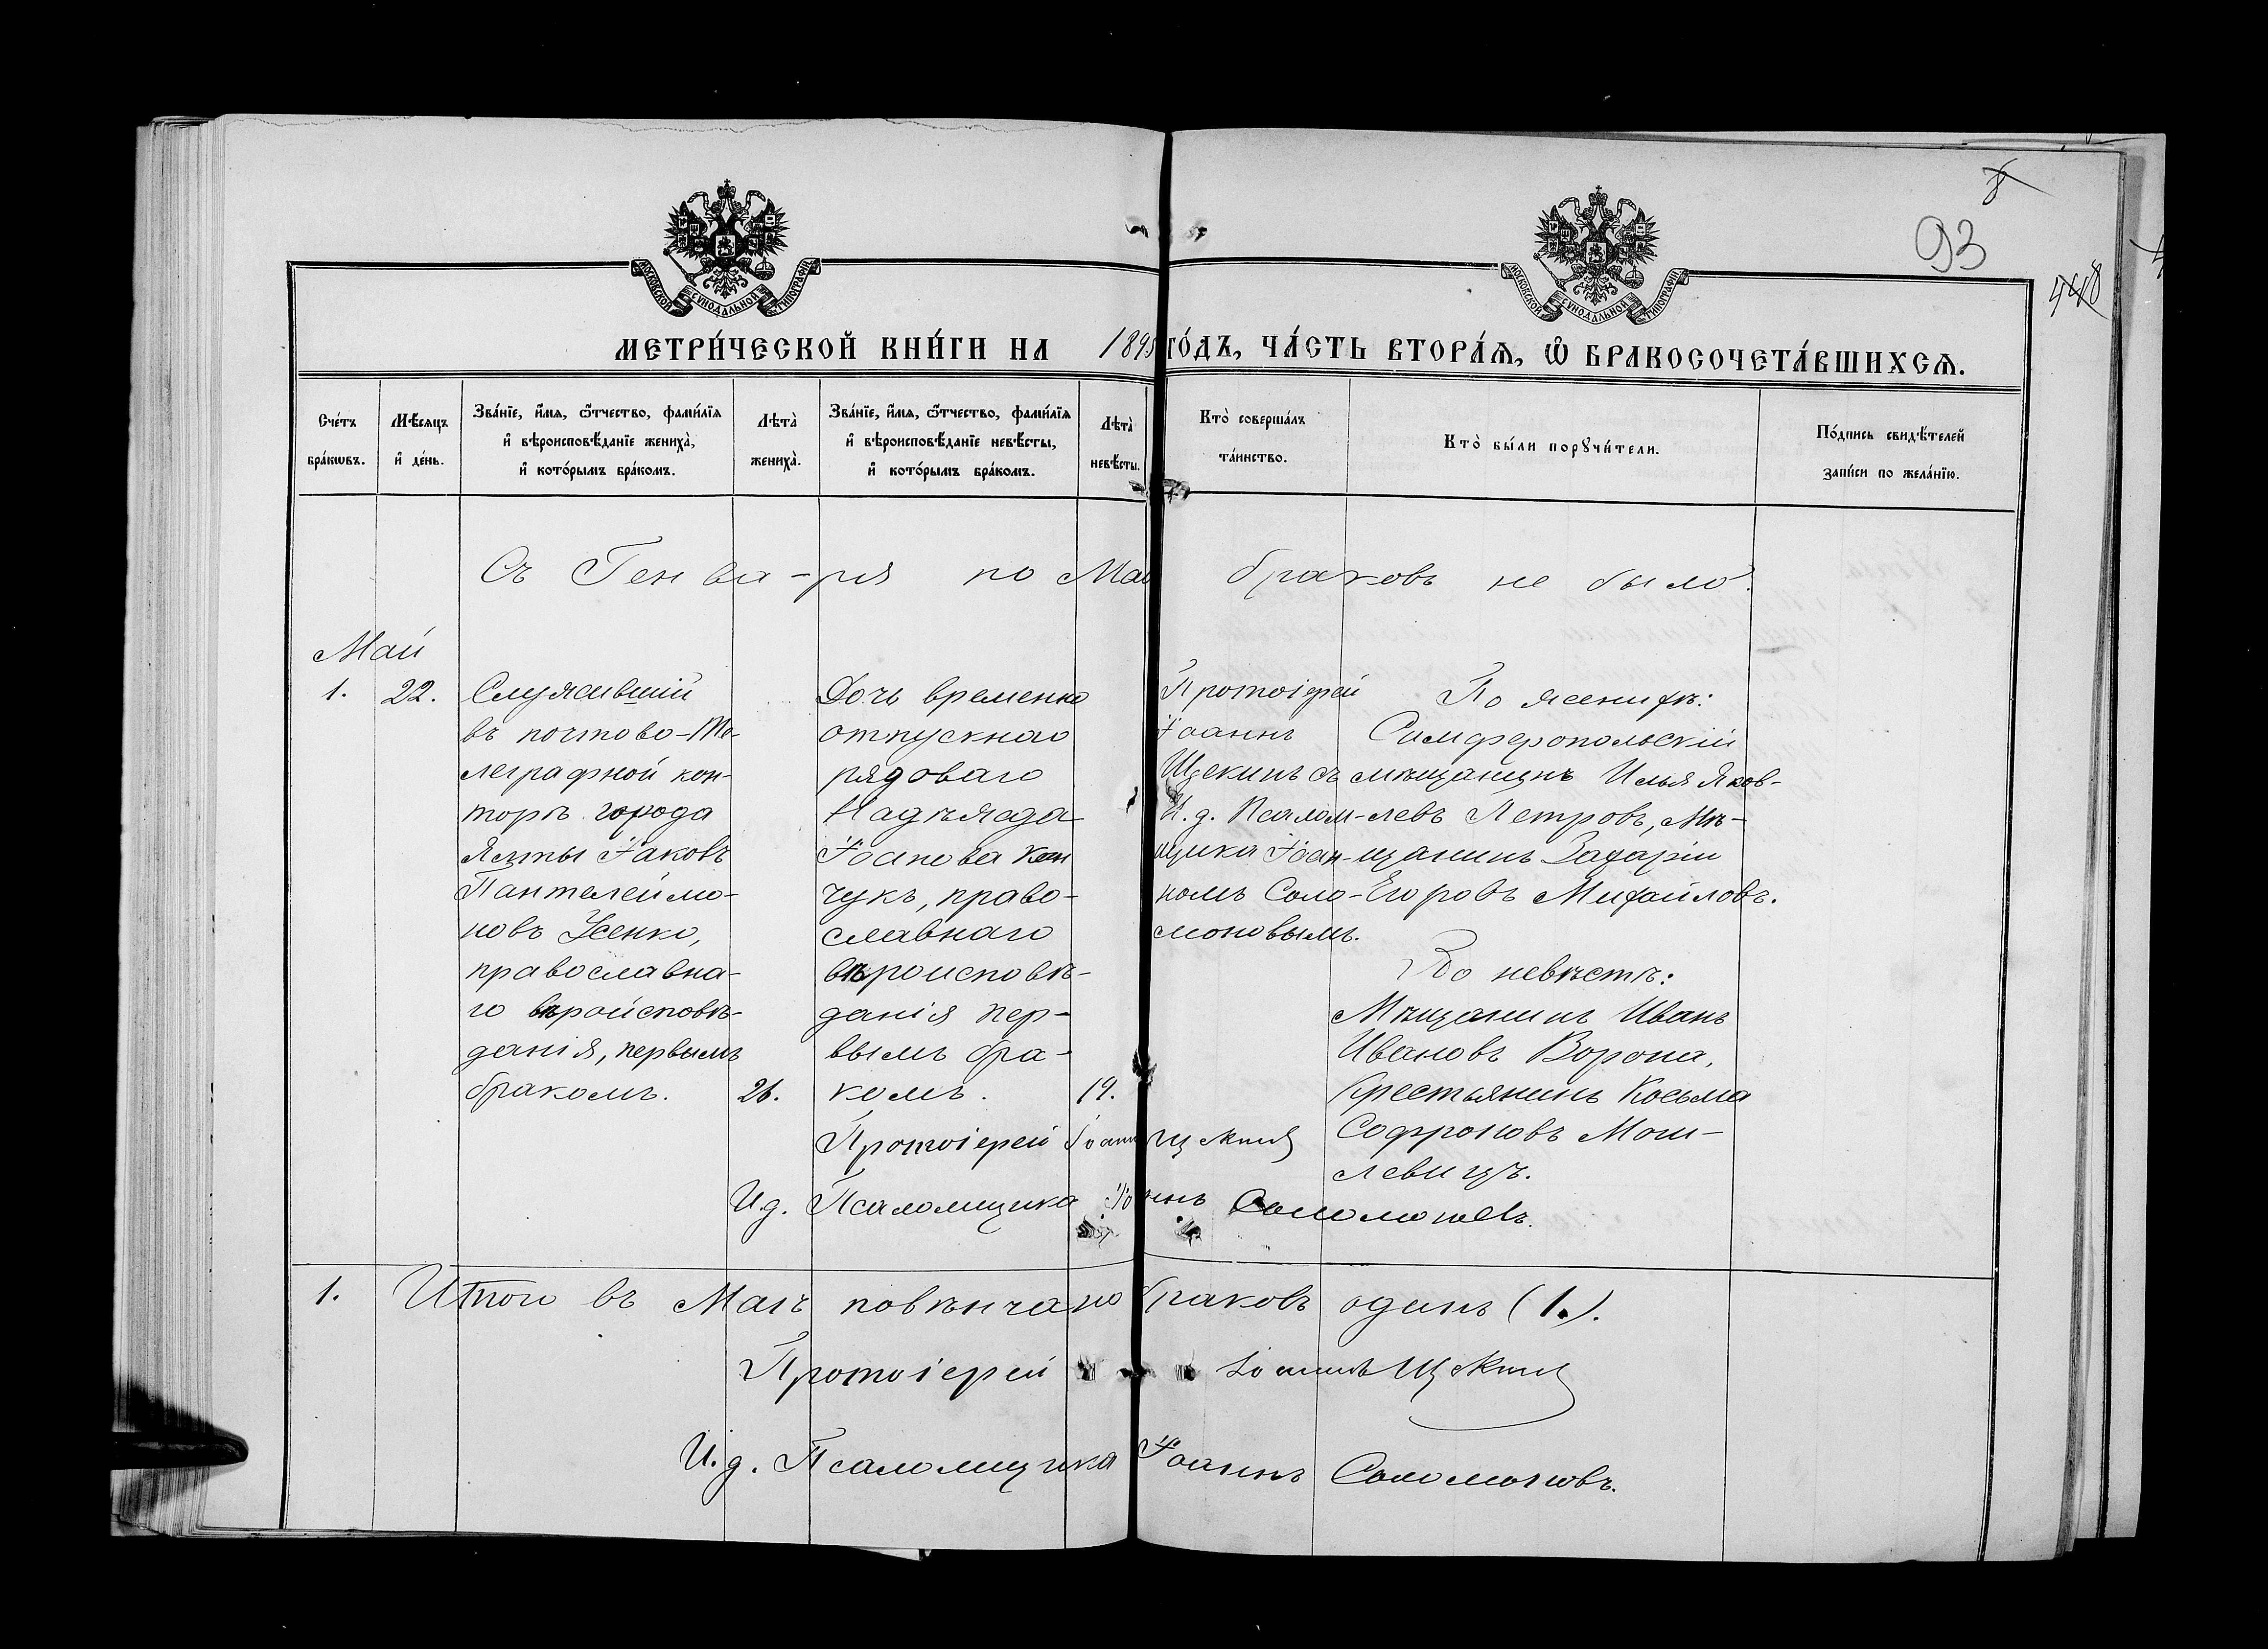 МОСКОВСКОЙ СѴНОДАЛЬНОЙ ТИПОГРАФІИ
МОСКОВСКОЙ СѴНОДАЛЬНОЙ ТИПОГРАФІИ
8
93
МЕТРИ́ЧЕСКОЙ КНИ́ГИ НА 1895 ГО́ДЪ, ЧА́СТЬ ВТОРА́Ѧ, Ѡ҆ БРАКОСОЧЕТА́ВШИХСѦ.
Сче́тъ бра́кѡвъ.
Мѣ́сѧцъ и҆ де́нь.
Зва́нїе, и҆́мѧ, ѻ҆́тчество, фамі́лїѧ и҆ вѣроисповѣ́данїе жениха̀, и҆ кото́рымъ бра́комъ.
Лѣ́та̀ жениха̀.
Зва́нїе, и҆́мѧ, ѻ҆́тчество, фамі́лїѧ и҆ вѣроисповѣ́данїе невѣ́сты, и҆ кото́рымъ бра́комъ.
Лѣ́та̀ невѣ́сты.
Кто̀ соверша́лъ та́инство.
Кто̀ бы́ли порꙋчи́тели.
По́дпись свидѣ́телей за́писи по жела́нїю.
Съ Генва-ря по Май браковъ не было.
Май
1. 22.
Служившій
въ почтово-те-
леграфной кон-
торѣ города
Ялты Іаковъ
Пантелеймо-
новъ Усенко,
православна-
го вѣроисповѣ-
данія, первымъ
бракомъ.
26.
Дочь временно
отпускнаго
рядоваго
Надѣжда
Іоанова
чукъ, право-
славнаго
вѣроисповѣ-
данія пер-
вымъ бра-
комъ.
19.
Протоіерей
Іоаннъ
Щекинъ съ
И. д. Псалом-
щика Іоан-
номъ Соло-
моновымъ.
По женихѣ:
Симферопольскій
мѣщанинъ Илья Яков-
левъ Петровъ, Мѣ-
щанинъ Захарій
Егоровъ Михайловъ.
По невѣстѣ:
Мѣщанинъ Иванъ
Ивановъ Ворона,
Крестьянинъ Косьма
Софроновъ Мош-
левицъ.
Протоіерей Іоаннъ Щекинъ
И д. Псаломщика Іоаннъ Соломоновъ.
1. Итого въ Маѣ повѣнчано браковъ одинъ (1.).
Протоіерей Іоаннъ Щекинъ
И. д. Псаломщика Іоаннъ Соломоновъ.